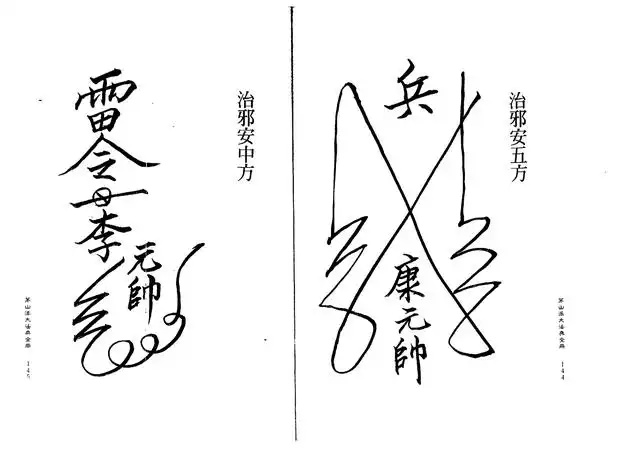 治邪安五方
兵
康元帥
茅山派大法典全冊
144
治邪安中方
雷令
李
元帥
茅山派大法典全冊
145